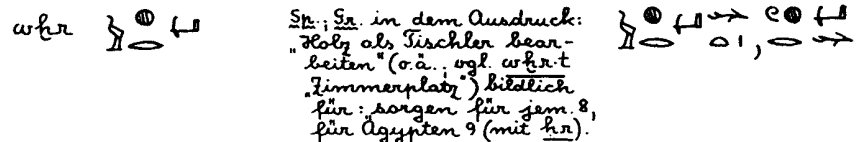 whr
Sp.; Gr. in dem Ausdruck:
„Holz als Tischler bear-
beiten" (o.ä.; vgl. whr.t
„Zimmerplatz") bildlich
für: sorgen für jem. 8,
für Ägypten 9 (mit ḥr).